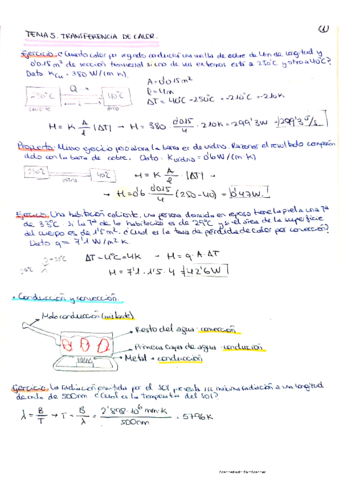 TEMA 5. TRANSFERENCIA DE CALOR.
(1)
Ejercicio: ¿Cuánto calor por segundo conducirá una varilla de cobre de 4m de longitud y
0'015 m² de sección transversal si uno de sus extremos está a 250°C y otro a 40°C?
Dato Kcu = 380 W/(m K)
250°C
40°C
A = 0'015 m²
l = 4m
ΔT = 40°C - 250°C = -210°C = -210K
H = K A/l |ΔT| → H = 380 · 0'015/4 · 210K = 299'3W → 299'3 J/s
Propuesto: Mismo ejercicio pero ahora la barra es de vidrio. Razonar el resultado comparán
dolo con la barra de cobre. Dato: Kvidrio = 0'6 W/(m K)
250°C
40°C
H = K A/l |ΔT| →
→ H = 0'6 0'015/4 (250-40) = 0'47W.
Ejercicio: Una habitación caliente, una persona desnuda en reposo tiene la piel a una Tª
de 33°C. Si la Tª de la habitación es de 29°C y si el área de la superficie
del cuerpo es de 1'5 m². ¿Cuál es la tasa de pérdidas de calor por convección?
Dato q = 7'1 W/m² K
ΔT = 4°C = 4K → H = q · A · ΔT
H = 7'1 · 1'5 · 4 = 42'6W
• Conducción y convección.
Mala conducción (aislante)
Resto del agua: convección
Primera capa de agua: conducción
Metal → conducción
Ejercicio: La radiación emitida por el SOL presenta su máxima radiación a una longitud
de onda de 500nm ¿Cuál es la temperatura del Sol?
λ = B/T → T = B/λ = 2'898·10⁶ nm·K/500nm = 5796K